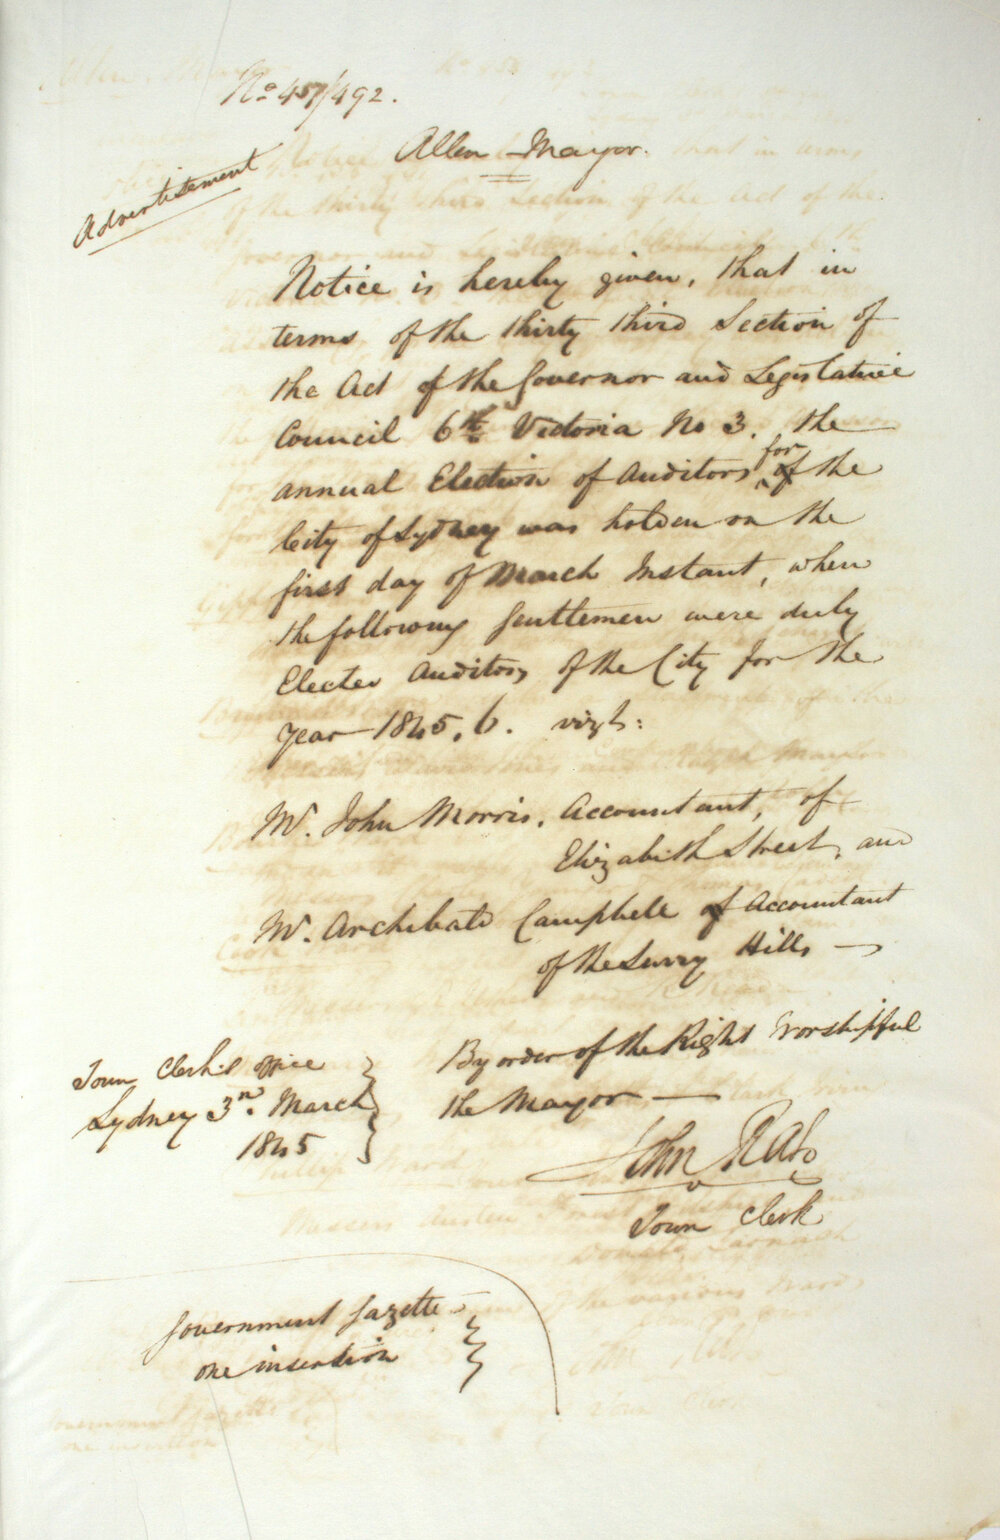 No 457/492.
Allen Mayor.
Advertisement
Notice is hereby given, that in
terms of the thirty third Section of
the Act of the Governor and Legislative
Council 6th Victoria No 3. the
annual Election of Auditors for of the
City of Sydney was holden on the
first day of March Instant, when
the following Gentlemen were duly
Elected Auditors of the City for the
year 1845.6. vizt:
Mr. John Morris, Accountant, of
Elizabeth Street, and
Mr. Archibald Campbell of Accountant
of the Surry Hills —
Town Clerk's office
Sydney 3rd. March
1845
By order of the Right Worshipful
the Mayor —
John Rae
Town Clerk
Government Gazette —
one insertion